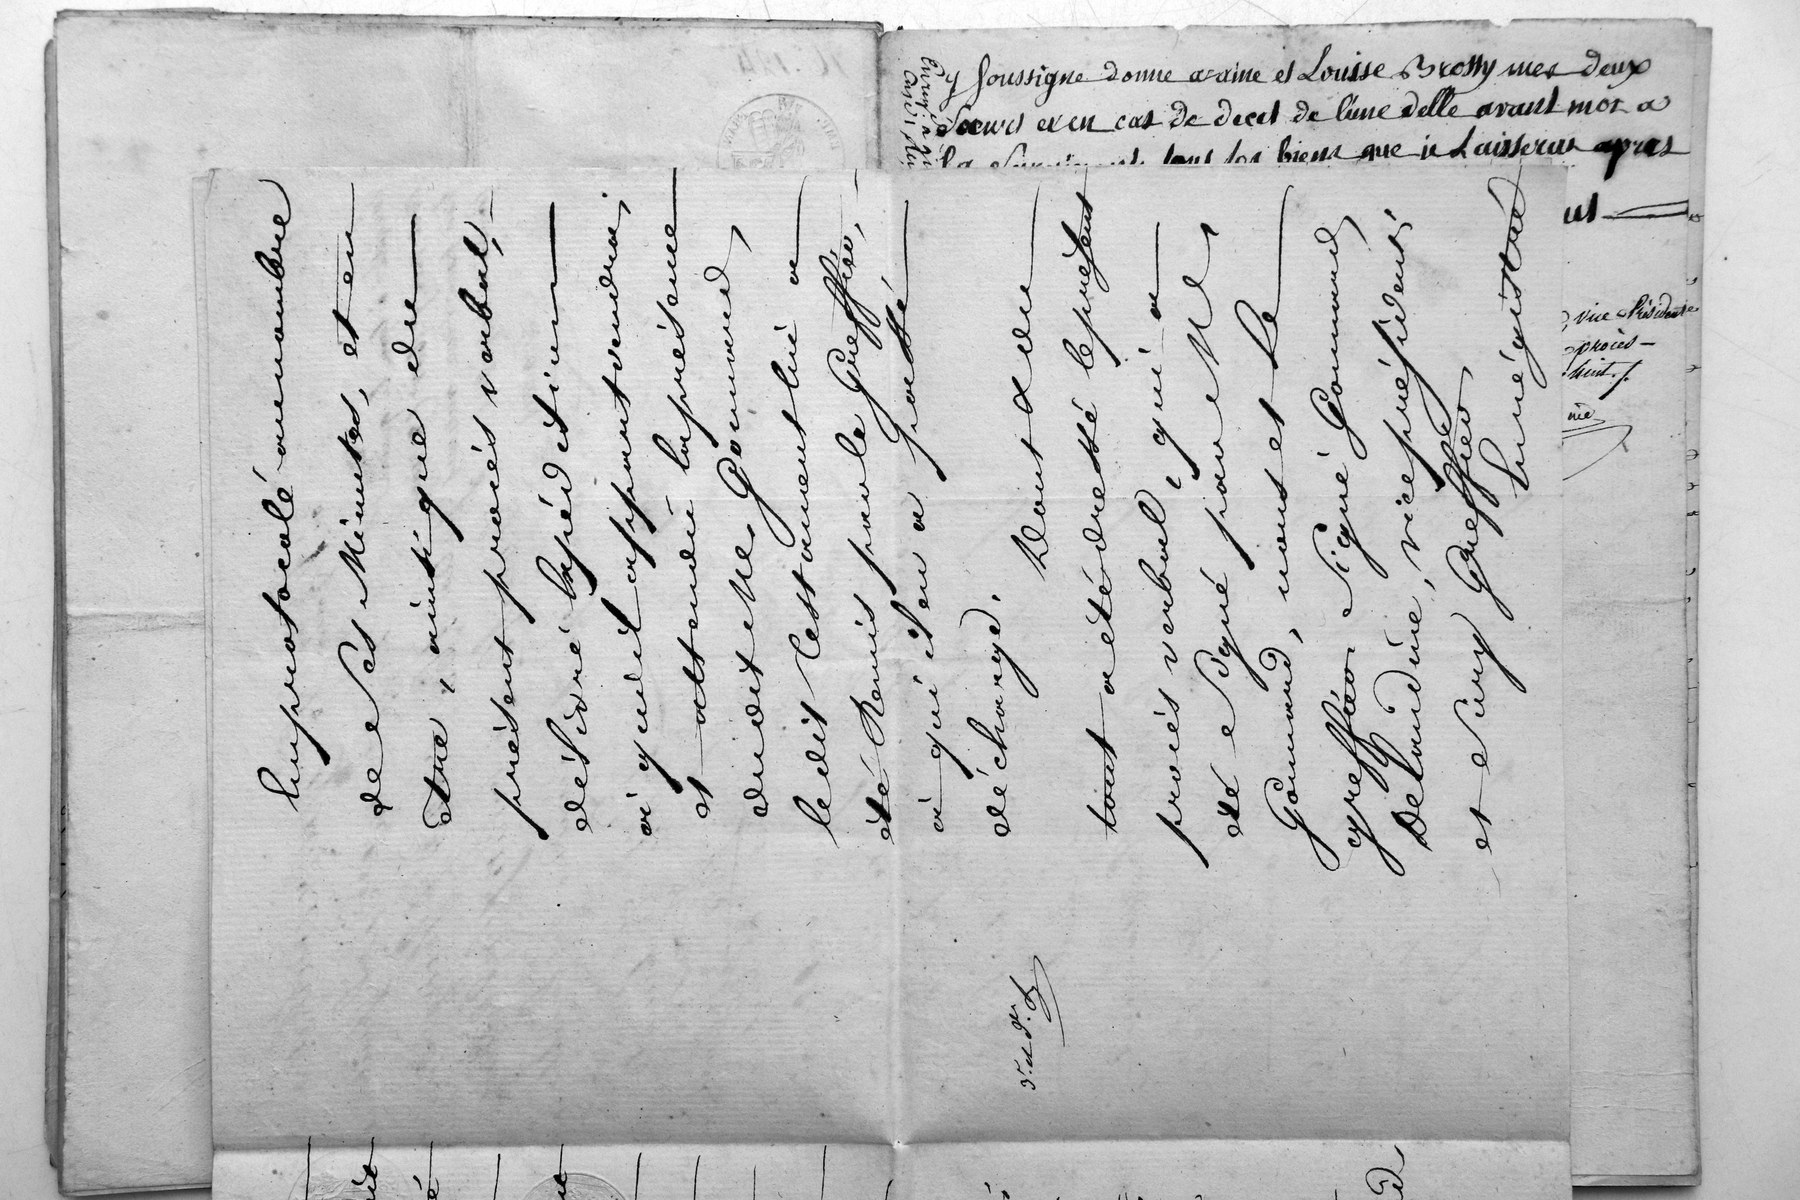 soussigne donne a Jeanne et Louise Brossy mes deux
Sœurs et en cas de deces de l'une delle avant moi a
tous les biens que je Laisserai apres
vice Président
procès-
l'un protocolé au nombre
de Ses Minutes, et en
être, ainsi que du
présent procès verbal,
délivré Expédition
à qui il appartiendra;
et attendu la présence
dudit Me Gonnard,
ledit Testament lui a
été Remis par le Greffier,
à qui il en a passé
décharge.
Dont du
tout a été dressé le présent
procès verbal, qui a
été Signé par Me
Gonnard, nous et le
greffier. Signé Gonnard,
Delandine, vice président,
et Sury Greffier
Enrégistré